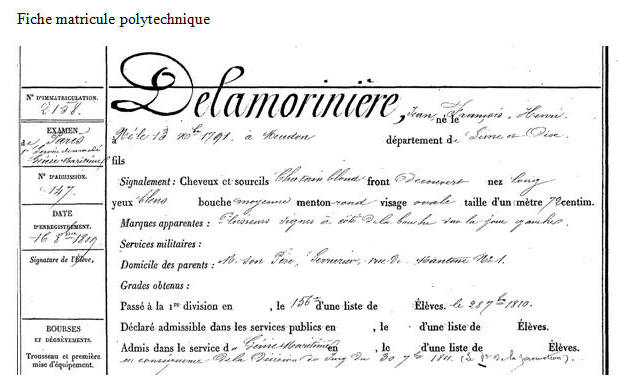 Fiche matricule polytechnique
N° D'IMMATRICULATION.
2138.
EXAMEN
de Paris
Génie Maritime
N° D'ADMISSION.
147.
DATE
D'ENREGISTREMENT.
16 8bre 1809
Signature de l'Élève,
BOURSES
ET DÉGRÈVEMENTS.
Trousseau et première
mise d'équipement.
Delamorinière, Jean François, Henri
né le
à Né le 13 Xbre 1791. à Meudon département de Seine et Oise.
fils
Signalement : Cheveux et sourcils Chatain blond front Decouvert nez long
yeux bleus bouche moyenne menton rond visage ovale taille d'un mètre 72 centim.
Marques apparentes : Plusieurs signes à côté de la bouche sur la joue gauche.
Services militaires :
Domicile des parents : M. son Père, Serrurier, rue de N° 1.
Grades obtenus :
Passé à la 1re division en , le 156e d'une liste de Élèves. le 28 7bre 1810.
Déclaré admissible dans les services publics en , le d'une liste de Élèves.
Admis dans le service d Génie Maritime en , le d'une liste de Élèves.
en conséquence de la Décision du 30 7bre 1811. (le de la promotion).